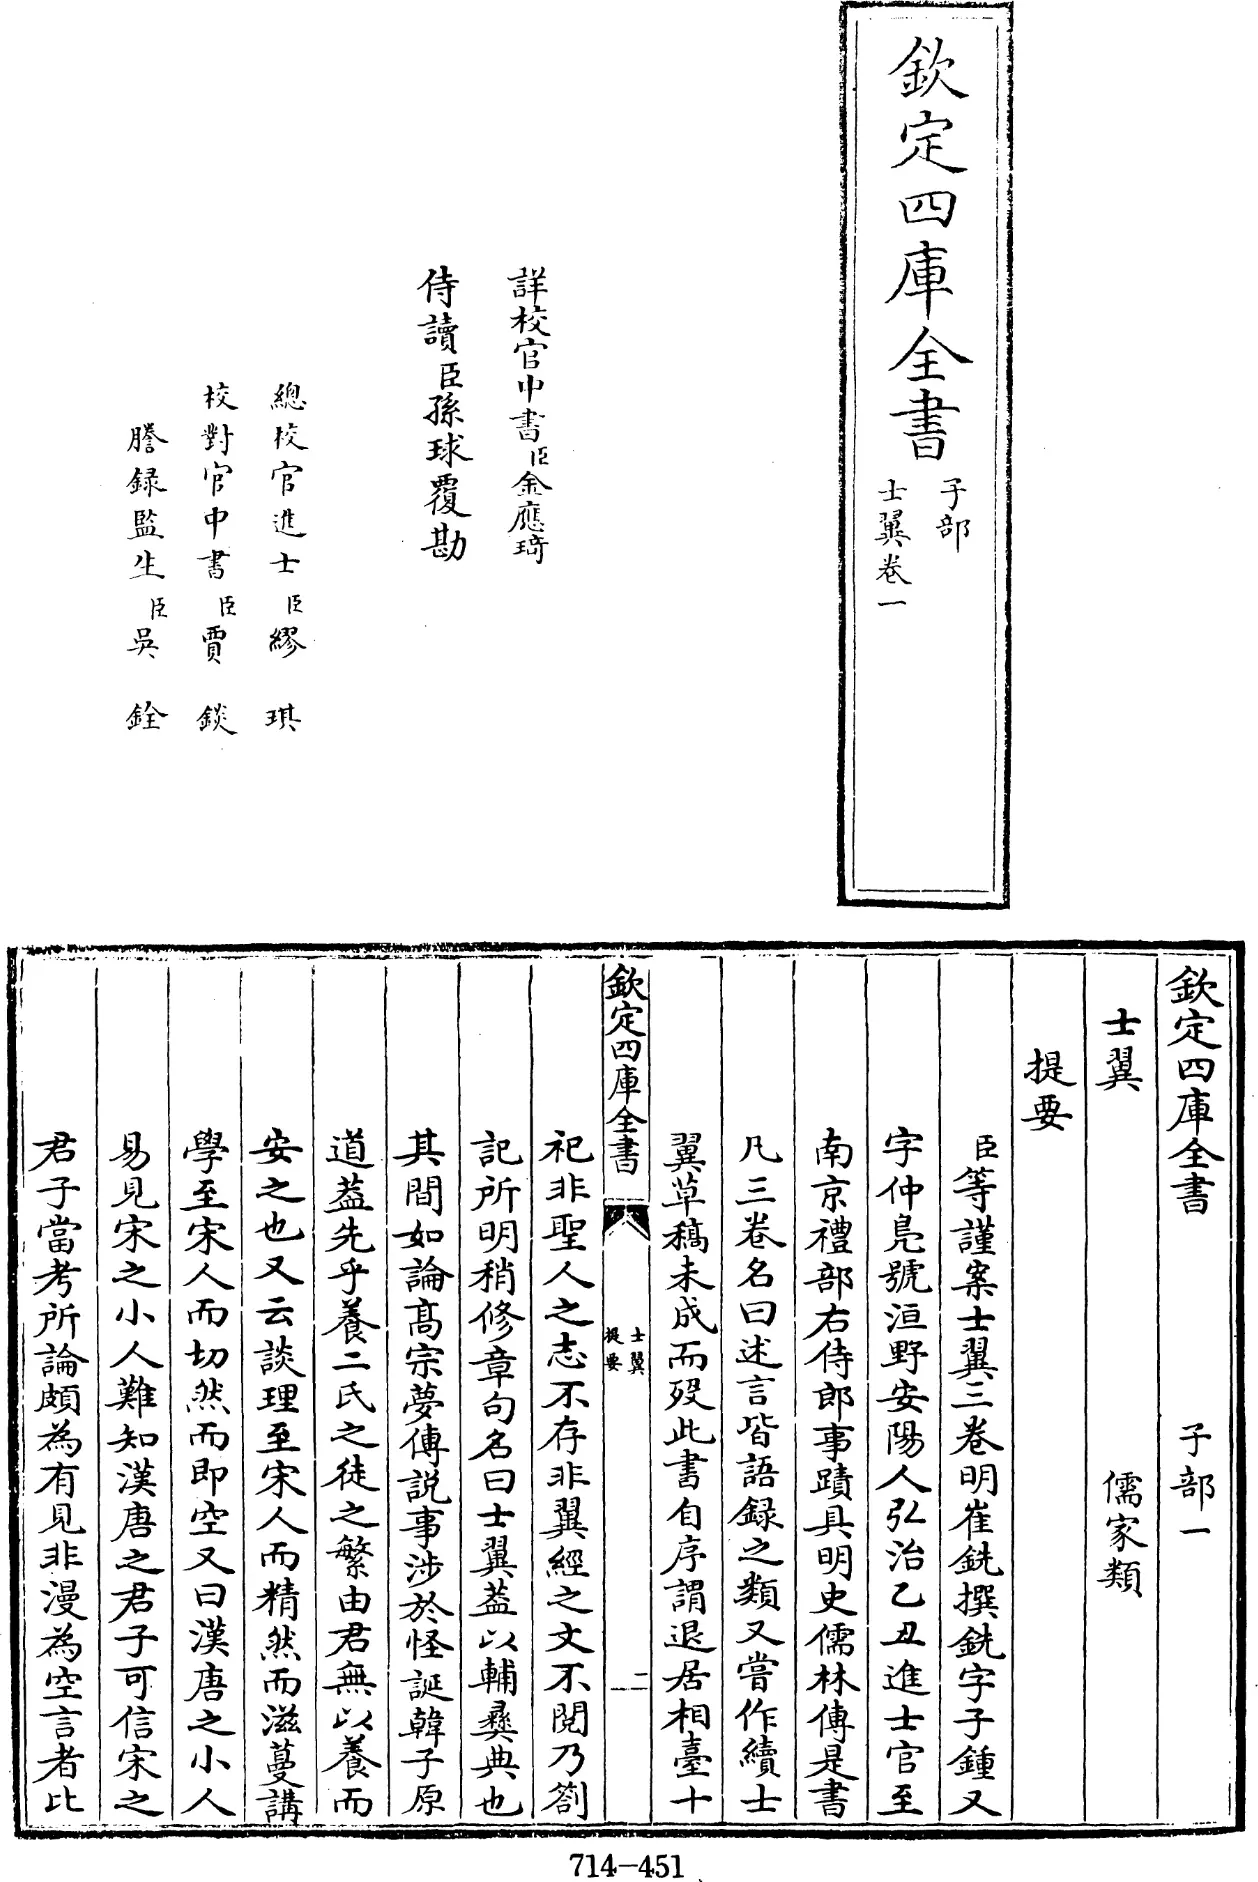 欽定四庫全書
子部
士翼卷一
詳校官中書臣金應琦
侍讀臣孫球覆勘
總校官進士臣繆琪
校對官中書臣賈錟
謄録監生臣吳銓
欽定四庫全書 子部一
士翼 儒家類
提要
臣等謹案士翼三卷明崔銑撰銑字子鍾又
字仲鳧號洹野安陽人弘治乙丑進士官至
南京禮部右侍郎事蹟具明史儒林傳是書
凡三卷名曰述言皆語録之類又嘗作續士
翼草稿未成而殁此書自序謂退居相臺十
欽定四庫全書
士翼
提要
二
祀非聖人之志不存非翼經之文不閱乃劄
記所明稍修章句名曰士翼葢以輔彝典也
其間如論髙宗夢傅説事涉於怪誕韓子原
道葢先乎養二氏之徒之繁由君無以養而
安之也又云談理至宋人而精然而滋蔓講
學至宋人而切然而即空又曰漢唐之小人
易見宋之小人難知漢唐之君子可信宋之
君子當考所論頗為有見非漫為空言者比
714-451